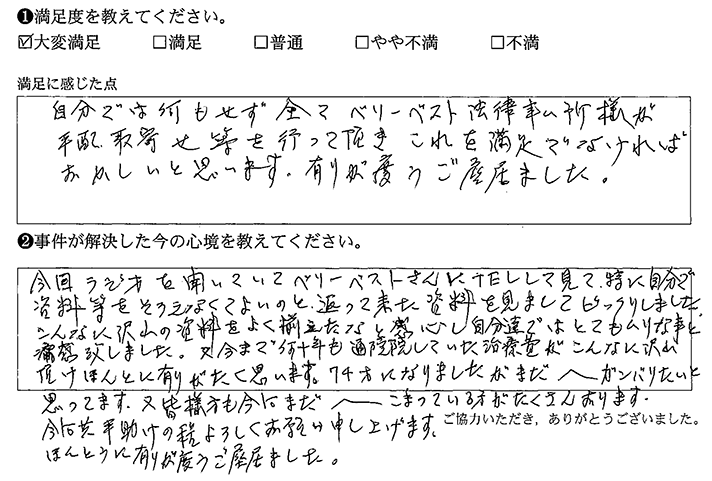 ❶満足度を教えてください。
☑大変満足 □満足 □普通 □やや不満 □不満
満足に感じた点
自分では何もせず全てベリーベスト法律事ム所様が
手配、取寄せ等を行って頂きこれを満足でなければ
おかしいと思います。有りが度うご座居ました。
❷事件が解決した今の心境を教えてください。
今回ラジオを聞いていてベリーベストさんにTELして見て、特に自分で
資料等をそろえなくてよいのと、返って来た資料を見ましてびっくりしました。
こんなに沢山の資料をよく揃えたなと感心し自分達ではとてもムリな事と
痛感致しました。又今まで何十年も通院していた治療費がこんなに沢山
頂けほんとに有りがたく思います。74才になりましたがまだ ガンバリたいと
思ってます。又皆様方も今はまだ こまっている方がたくさんおります。
ご協力いただき，ありがとうございました。
今后共手助けの程よろしくお願い申し上げます。
ほんとうに有りが度うご座居ました。